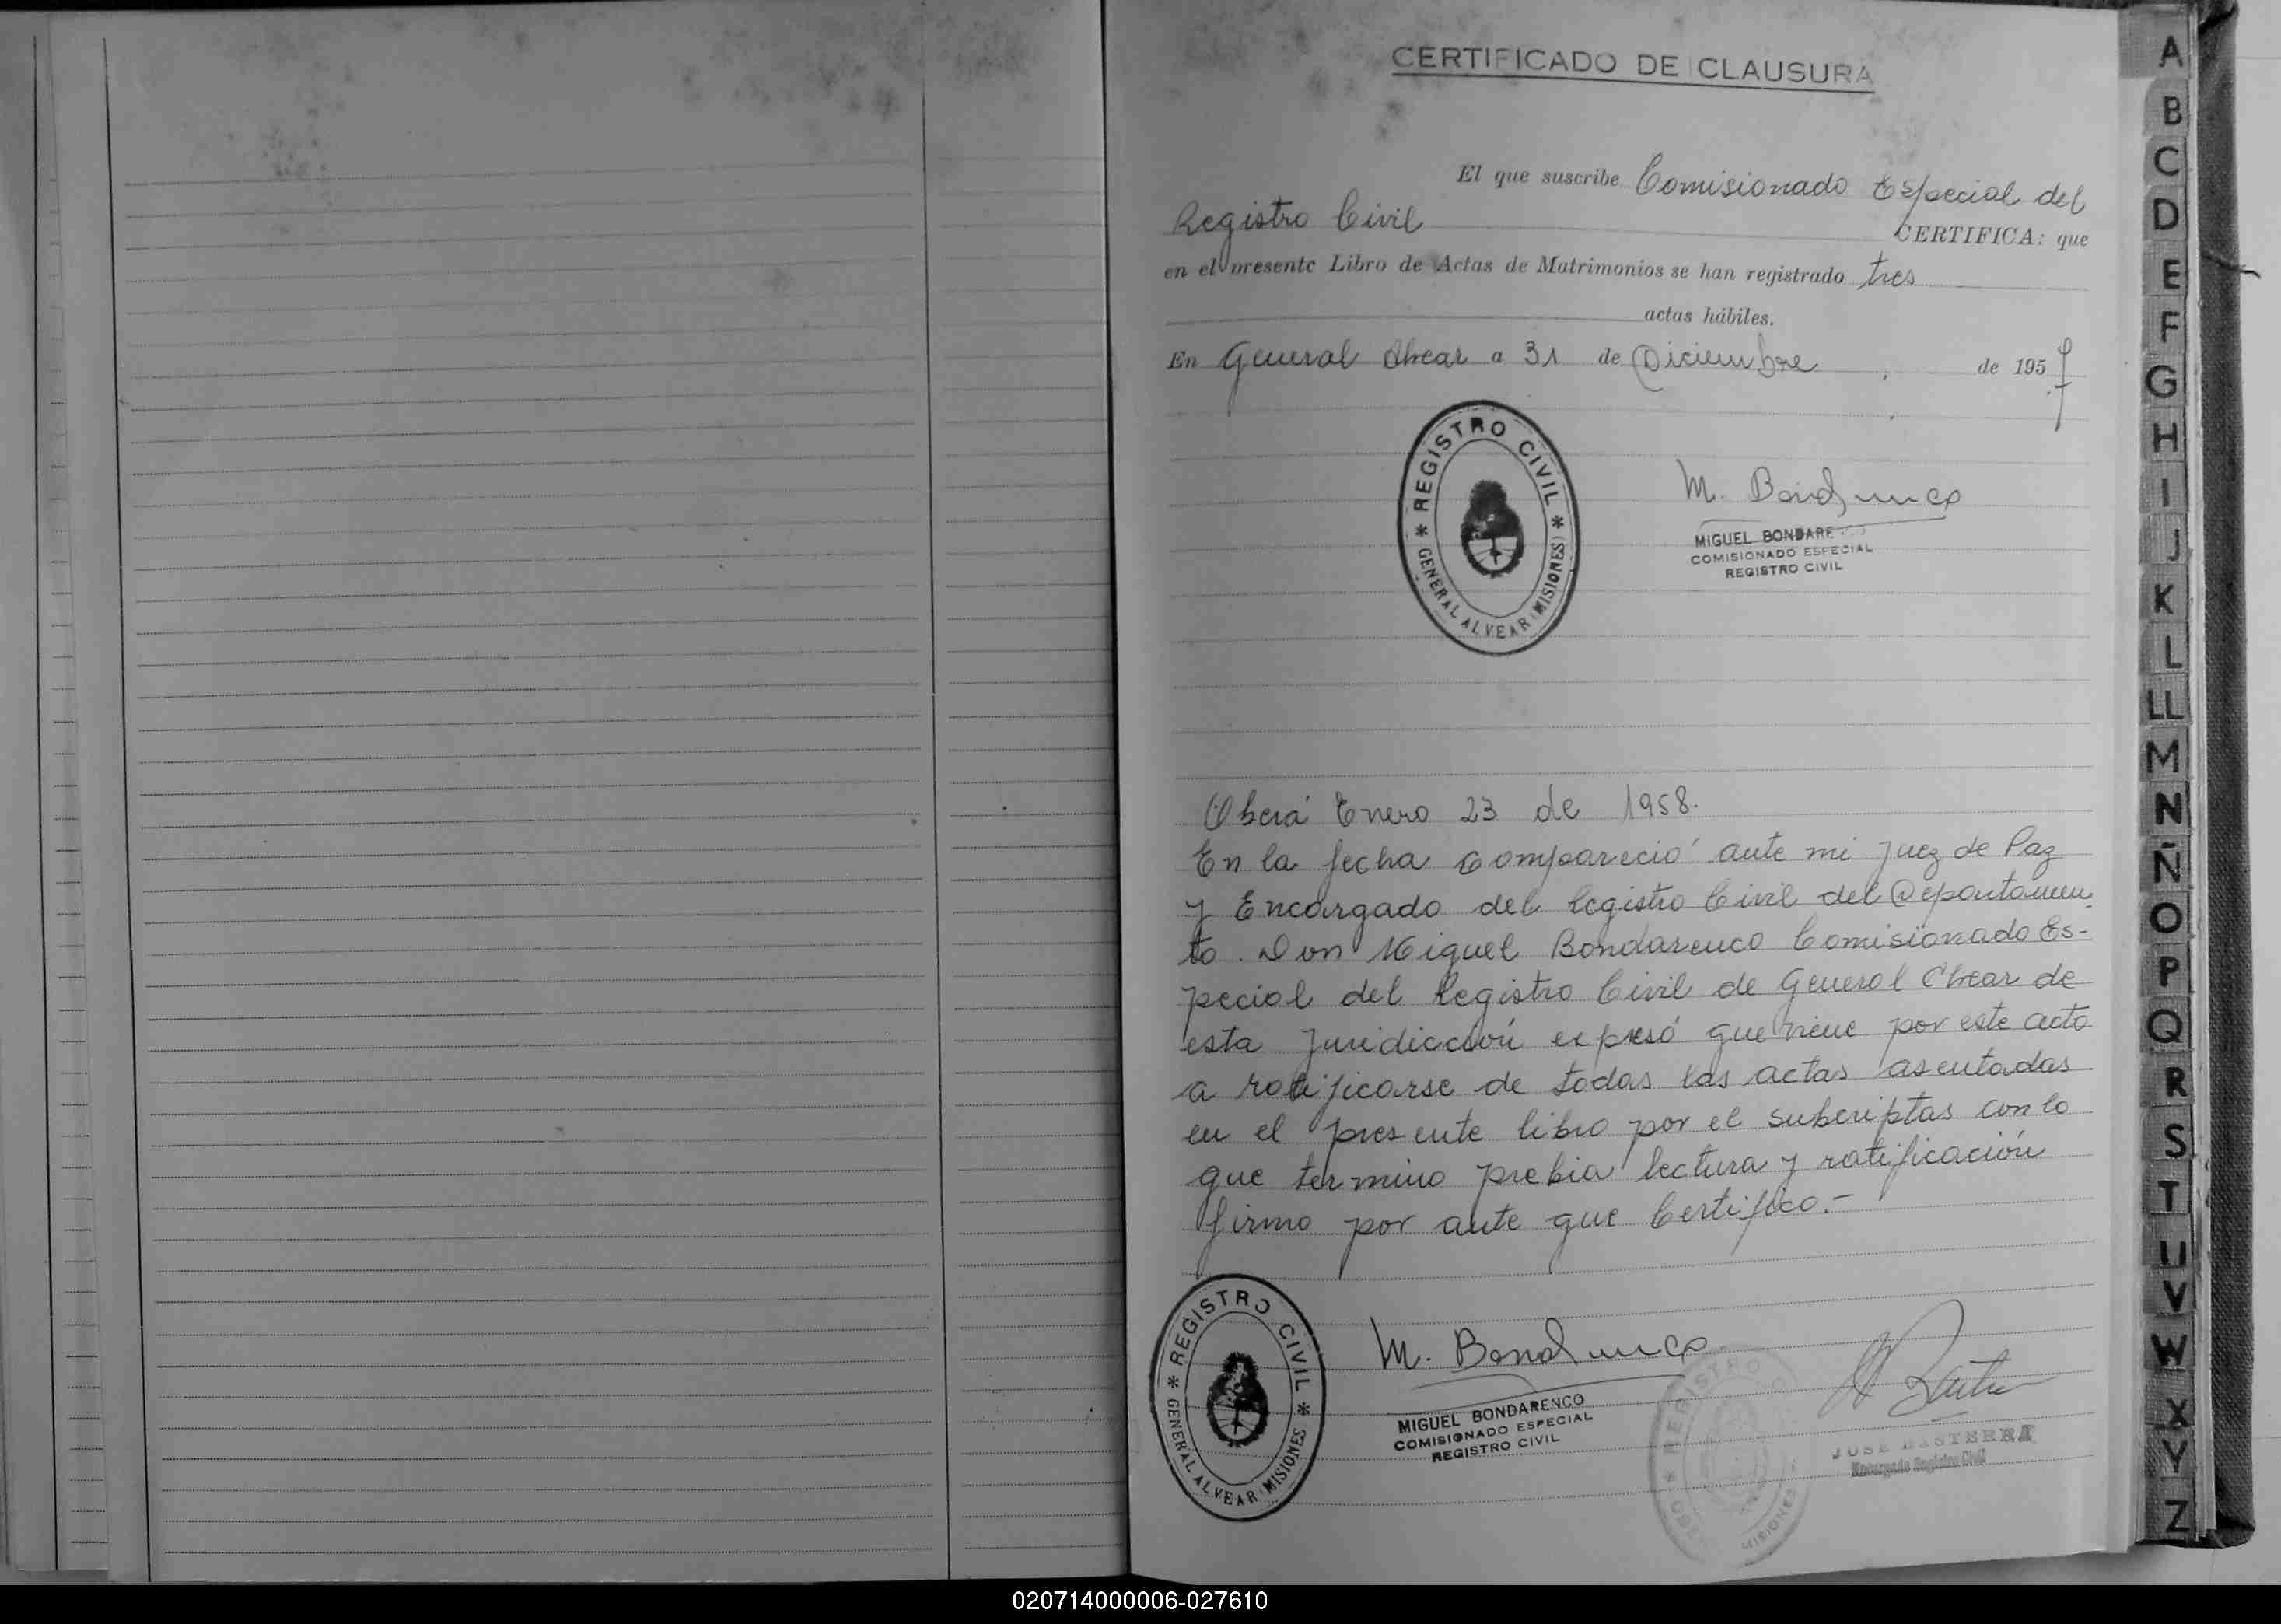 CERTIFICADO DE CLAUSURA
El que suscribe Comisionado Especial del
Registro Civil CERTIFICA: que
en el presente Libro de Actas de Matrimonios se han registrado tres
actas hábiles.
En General Alvear a 31 de Diciembre de 1957
* REGISTRO CIVIL *
GENERAL ALVEAR (MISIONES)
M. Bondarenco
MIGUEL BONDARENCO
COMISIONADO ESPECIAL
REGISTRO CIVIL
Oberá Enero 23 de 1958.
En la fecha compareció ante mi Juez de Paz
y Encargado del Registro Civil del Departamen
to. Don Miguel Bondarenco Comisionado Es-
pecial del Registro Civil de General Alvear de
esta Juridicción expresó que viene por este acto
a ratificarse de todas las actas asentadas
en el presente libro por el subcriptas con lo
que termino prebia lectura y ratificación
firmo por ante que Certifico.-
* REGISTRO CIVIL *
GENERAL ALVEAR (MISIONES
M. Bondarenco
MIGUEL BONDARENCO
COMISIONADO ESPECIAL
REGISTRO CIVIL
* REGISTRO
MISIONES
JOSE BASTERRA
Encargado Registro Civil
A
B
C
D
E
F
G
H
I
J
K
L
LL
M
N
Ñ
O
P
Q
R
S
T
U
V
W
X
Y
Z
020714000006-027610